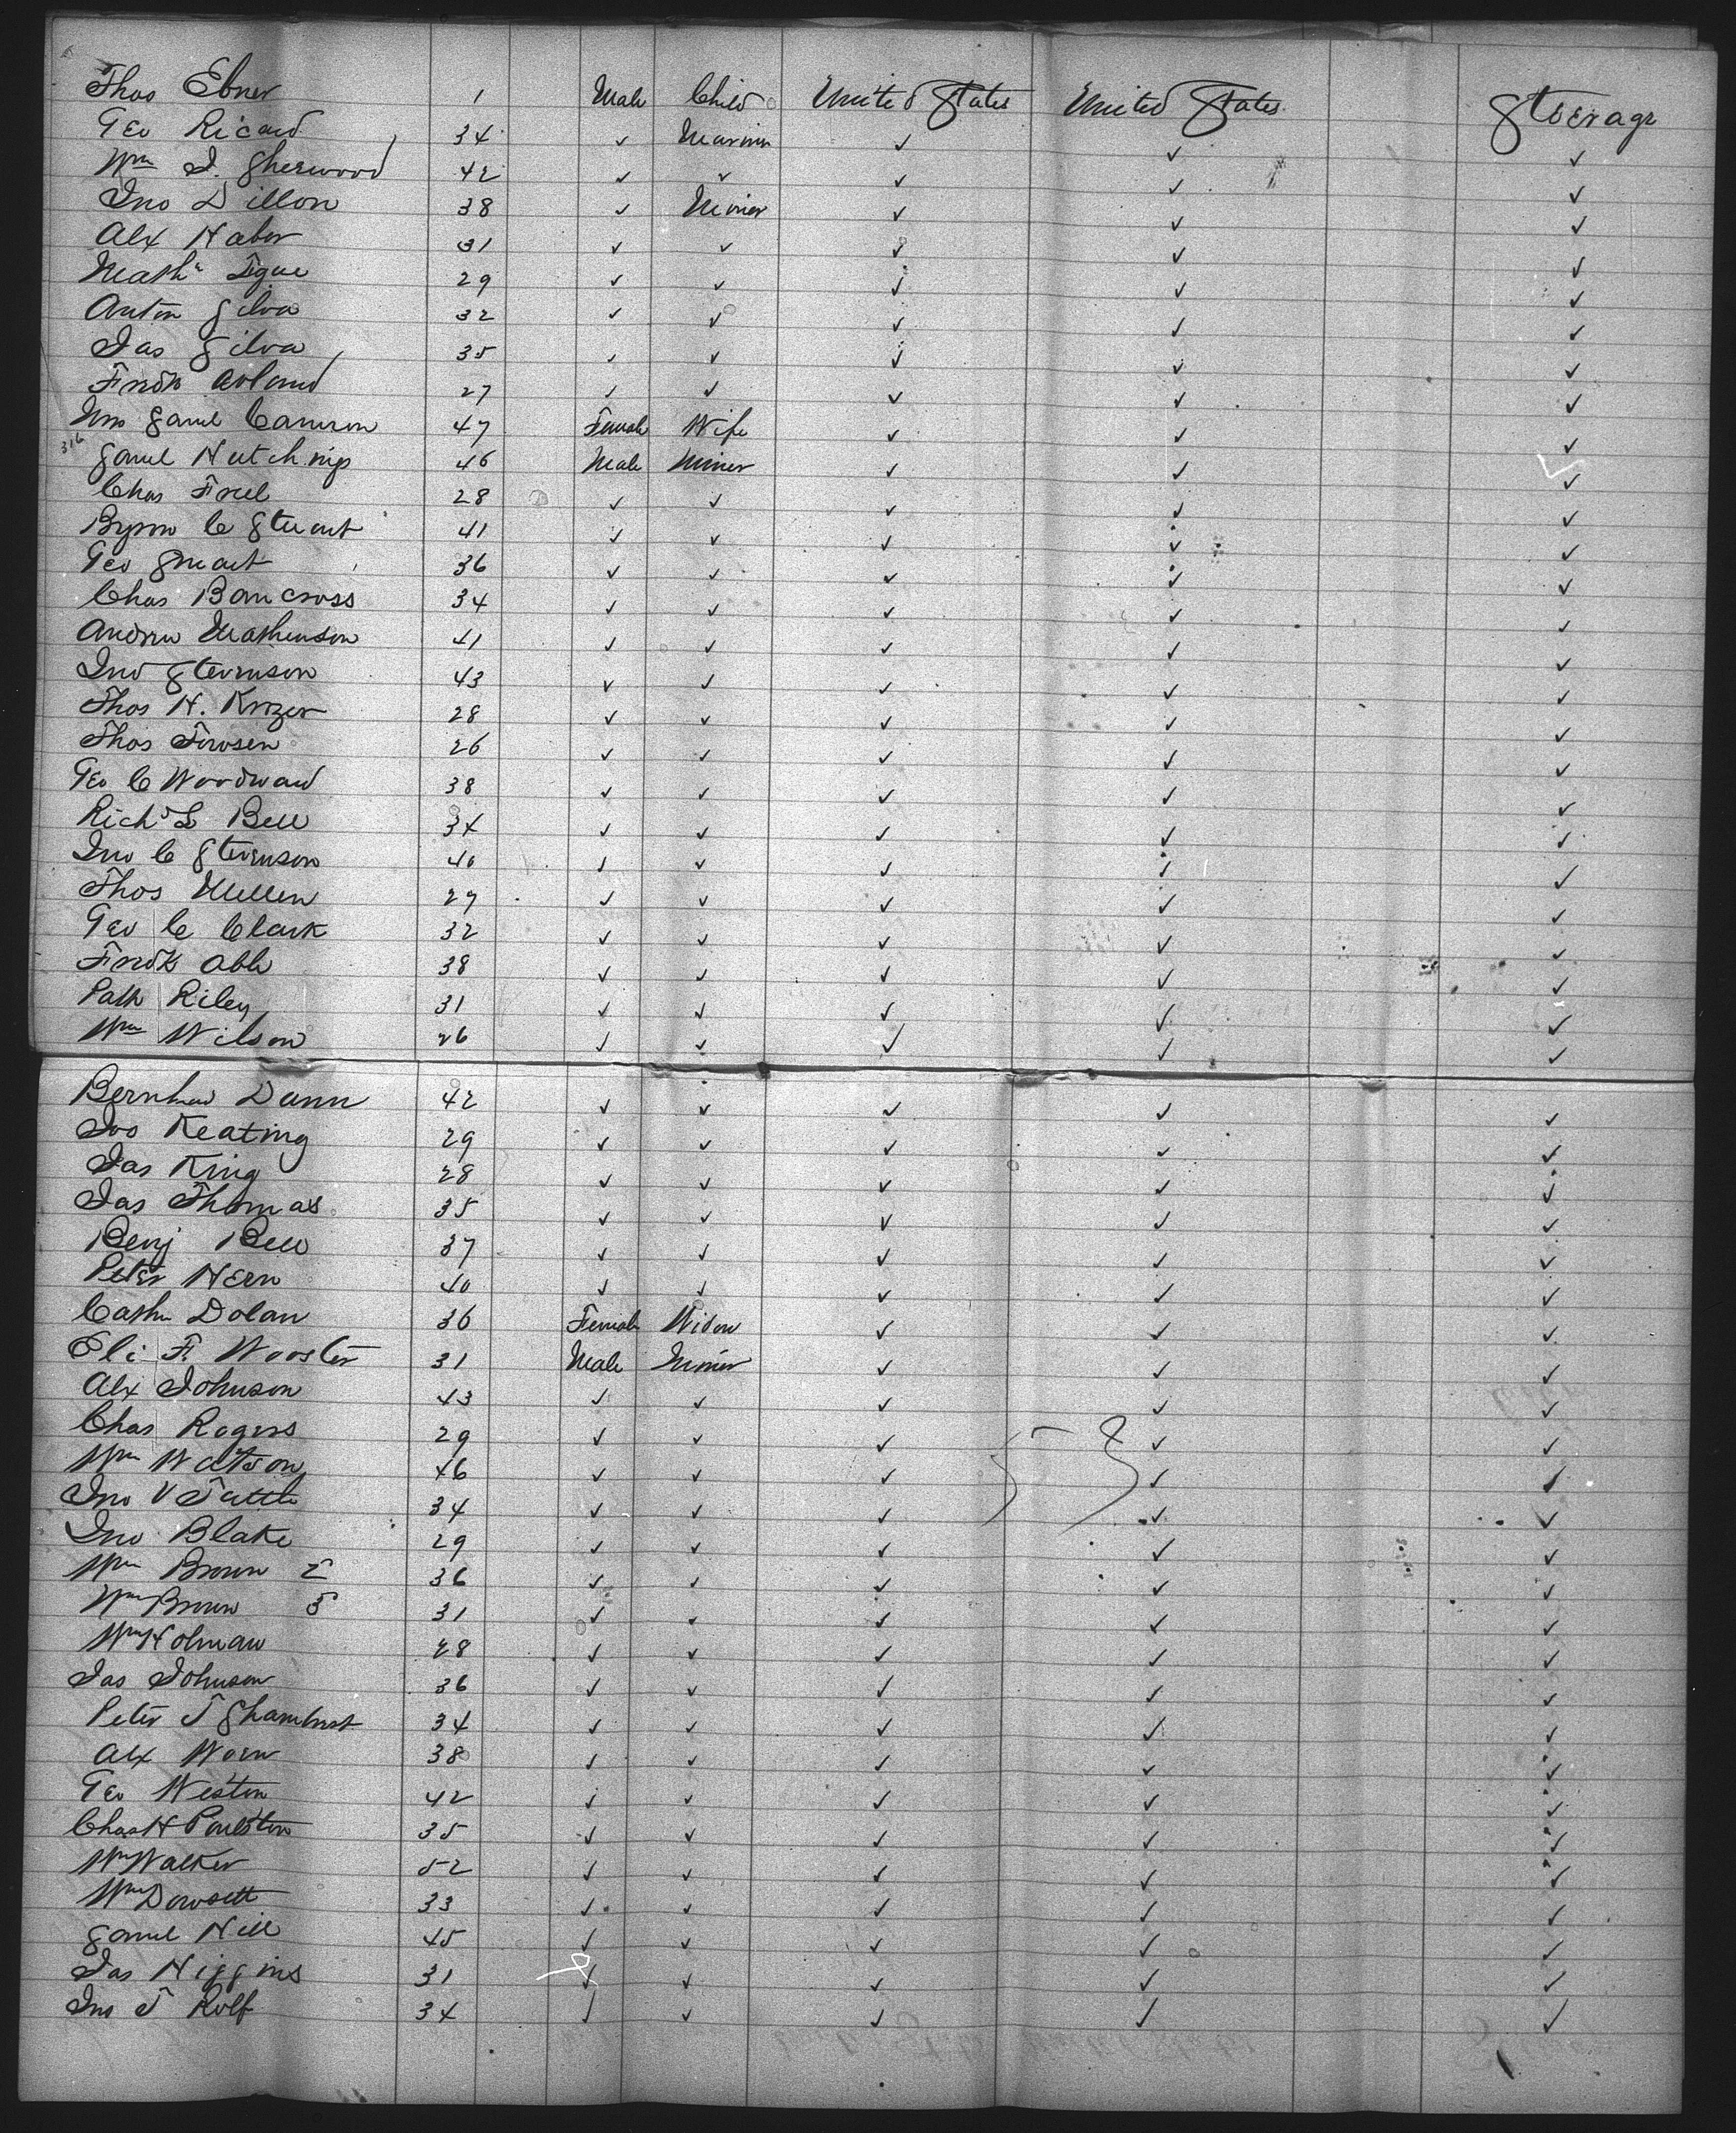 Thos Ebner 1 Male Child United States United States Steerage
Geo Ricard 34 ✓ Mariner ✓ ✓ ✓
Wm J. Sherwood 42 ✓ ✓ ✓ ✓ ✓
Jno Dillon 38 ✓ Miner ✓ ✓ ✓
Alx Haber 31 ✓ ✓ ✓ ✓ ✓
29 ✓ ✓ ✓ ✓ ✓
Anton Silva 32 ✓ ✓ ✓ ✓ ✓
Jas Silva 35 ✓ ✓ ✓ ✓ ✓
Fredk Acland 27 ✓ ✓ ✓ ✓ ✓
Mrs Saml Cameron 47 Female Wife ✓ ✓ ✓
316 Saml Hutchings 46 Male Miner ✓ ✓ ✓
Chas Freel 28 ✓ ✓ ✓ ✓ ✓
Byron C Stewart 41 ✓ ✓ ✓ ✓ ✓
Geo Smart 36 ✓ ✓ ✓ ✓ ✓
Chas Bancross 34 ✓ ✓ ✓ ✓ ✓
Andrew Mathewson 41 ✓ ✓ ✓ ✓ ✓
Jno Stevenson 43 ✓ ✓ ✓ ✓ ✓
Thos H. Krizer 28 ✓ ✓ ✓ ✓ ✓
Thos 26 ✓ ✓ ✓ ✓ ✓
Geo C Woodward 38 ✓ ✓ ✓ ✓ ✓
Richd L Bell 34 ✓ ✓ ✓ ✓ ✓
Jno C Stevenson 40 ✓ ✓ ✓ ✓ ✓
Thos Mullen 27 ✓ ✓ ✓ ✓ ✓
Geo C Clark 32 ✓ ✓ ✓ ✓ ✓
Fredk Able 38 ✓ ✓ ✓ ✓ ✓
Patk Riley 31 ✓ ✓ ✓ ✓ ✓
Wm Wilson 26 ✓ ✓ ✓ ✓ ✓
Bernhard Dann 42 ✓ ✓ ✓ ✓ ✓
Jos Keating 29 ✓ ✓ ✓ ✓ ✓
Jas King 28 ✓ ✓ ✓ ✓ ✓
Jas Thomas 35 ✓ ✓ ✓ ✓ ✓
Benj Bell 37 ✓ ✓ ✓ ✓ ✓
Peter Hern 40 ✓ ✓ ✓ ✓ ✓
Cathn Dolan 36 Female Widow ✓ ✓ ✓
Eli F. Wooster 31 Male Miner ✓ ✓ ✓
Alx Johnson 43 ✓ ✓ ✓ ✓ ✓
Chas Rogers 29 ✓ ✓ ✓ ✓ ✓
Wm Watson 46 ✓ ✓ ✓ ✓ ✓
Jno V Tuttle 34 ✓ ✓ ✓ ✓ ✓
Jno Blake 29 ✓ ✓ ✓ ✓ ✓
Wm Brown 2 36 ✓ ✓ ✓ ✓ ✓
Wm Brown 3 31 ✓ ✓ ✓ ✓ ✓
Wm Holman 28 ✓ ✓ ✓ ✓ ✓
Jas Johnson 36 ✓ ✓ ✓ ✓ ✓
Peter T 34 ✓ ✓ ✓ ✓ ✓
Alx Worn 38 ✓ ✓ ✓ ✓ ✓
Geo Weston 42 ✓ ✓ ✓ ✓ ✓
Chas H Poulston 35 ✓ ✓ ✓ ✓ ✓
Wm Walker 52 ✓ ✓ ✓ ✓ ✓
Wm Dowsett 33 ✓ ✓ ✓ ✓ ✓
Saml Hill 45 ✓ ✓ ✓ ✓ ✓
Jas Higgins 31 ✓ ✓ ✓ ✓ ✓
Jno T Rolf 34 ✓ ✓ ✓ ✓ ✓